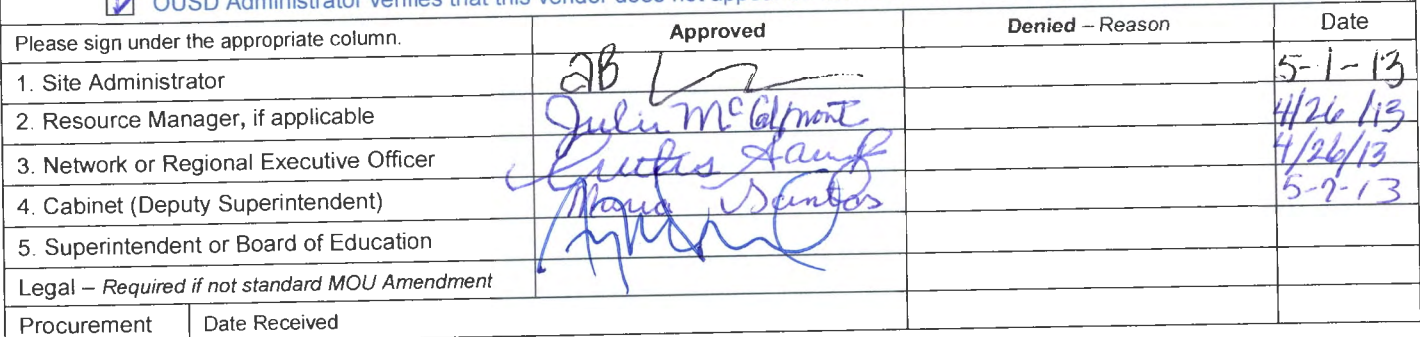 OUSD Administrator verifies that this vendor does not appe
Please sign under the appropriate column. Approved Denied – Reason Date
1. Site Administrator 5-1-13
2. Resource Manager, if applicable Julia McCalmont 4/26/13
3. Network or Regional Executive Officer 4/26/13
4. Cabinet (Deputy Superintendent) Maria Santos
5. Superintendent or Board of Education
Legal – Required if not standard MOU Amendment
Procurement Date Received